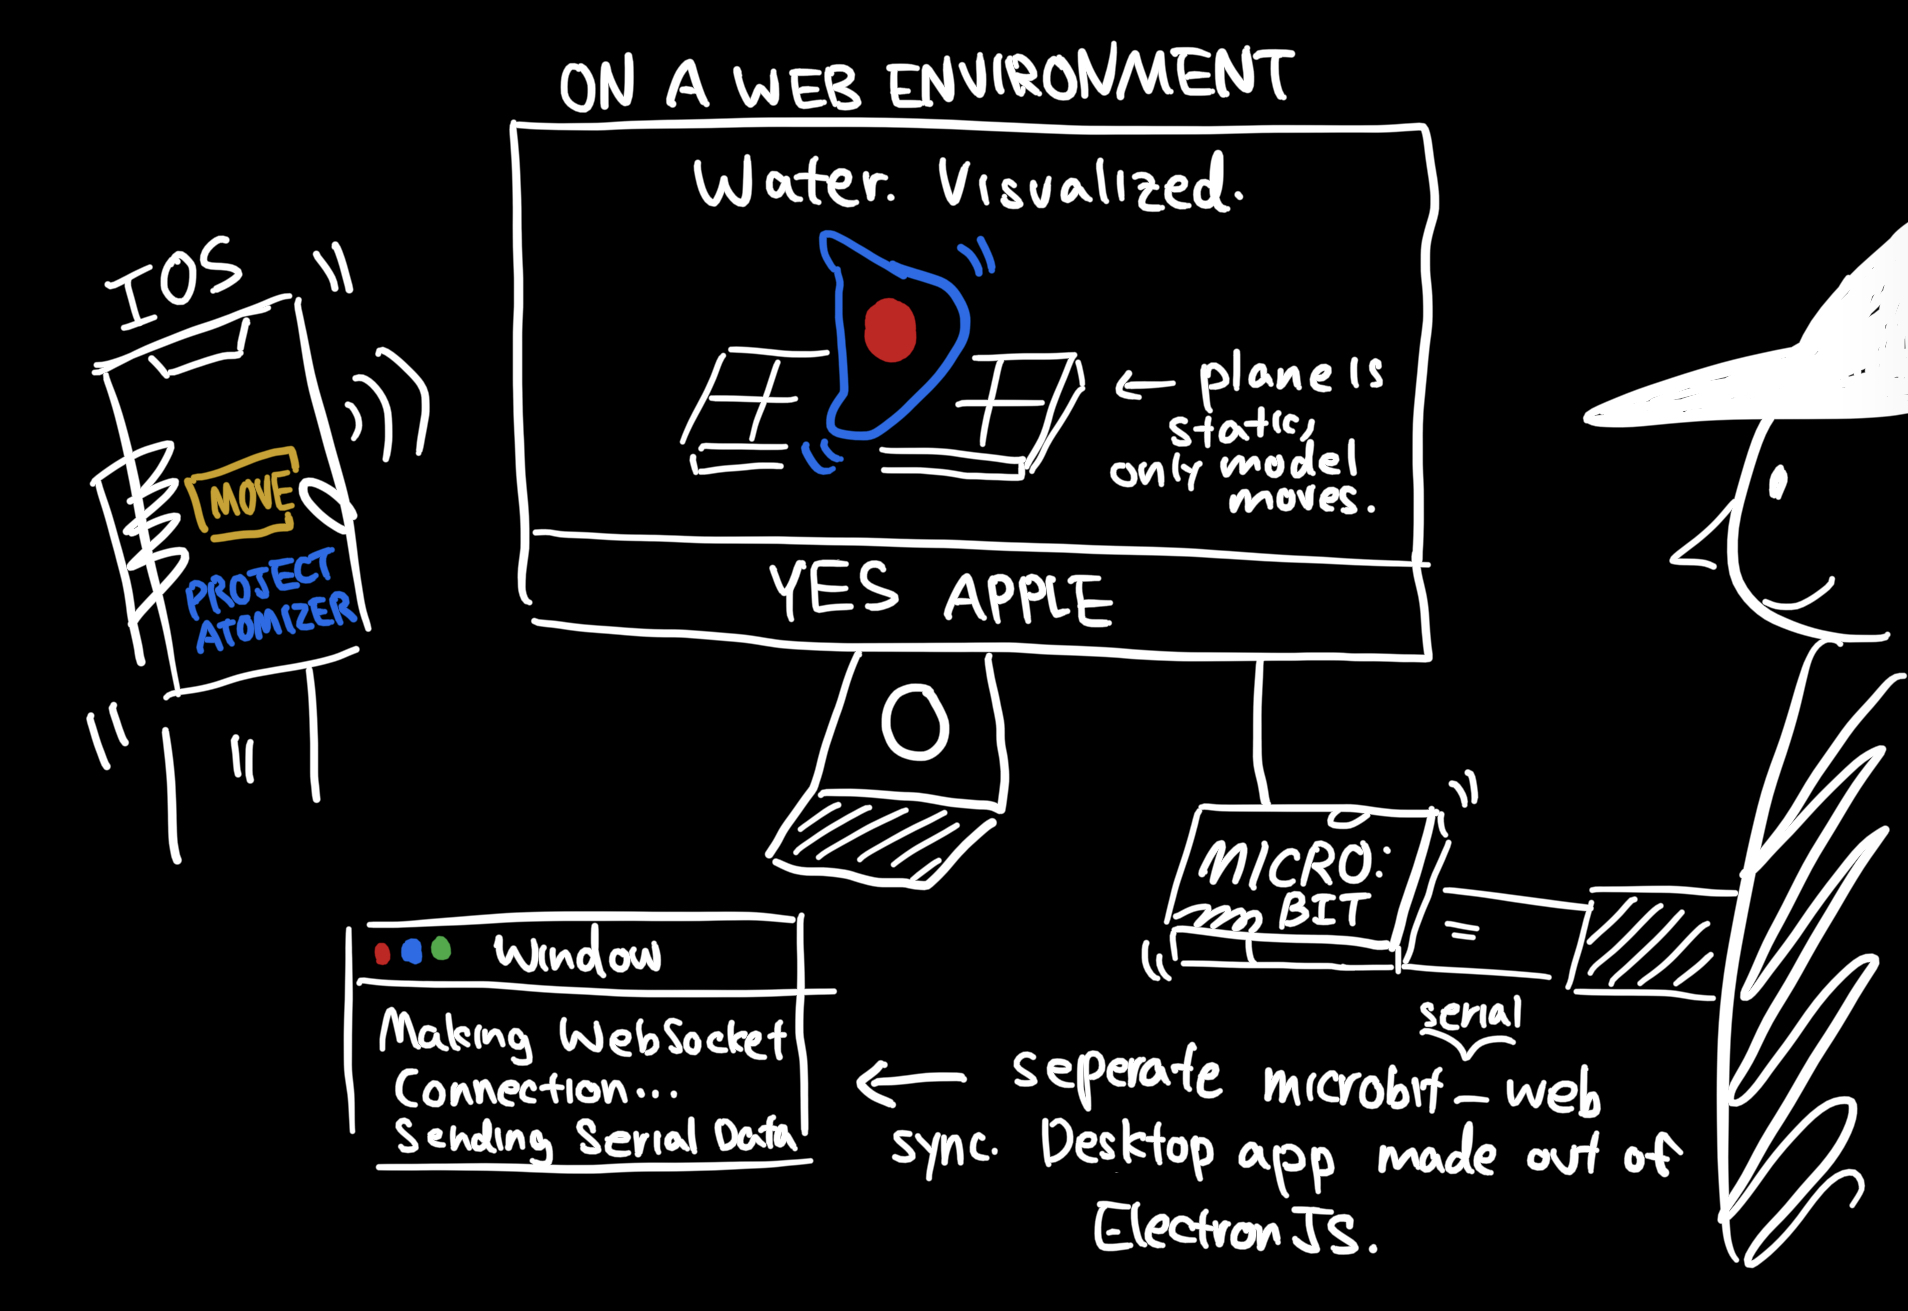 ON A WEB ENVIRONMENT
Water. Visualized.
← plane is
static,
only model
moves.
YES APPLE
IOS
MOVE
PROJECT
ATOMIZER
MICRO:
BIT
Window
Making WebSocket
Connection...
Sending Serial Data
serial
← seperate microbit - web
sync. Desktop app made out of
ElectronJS.